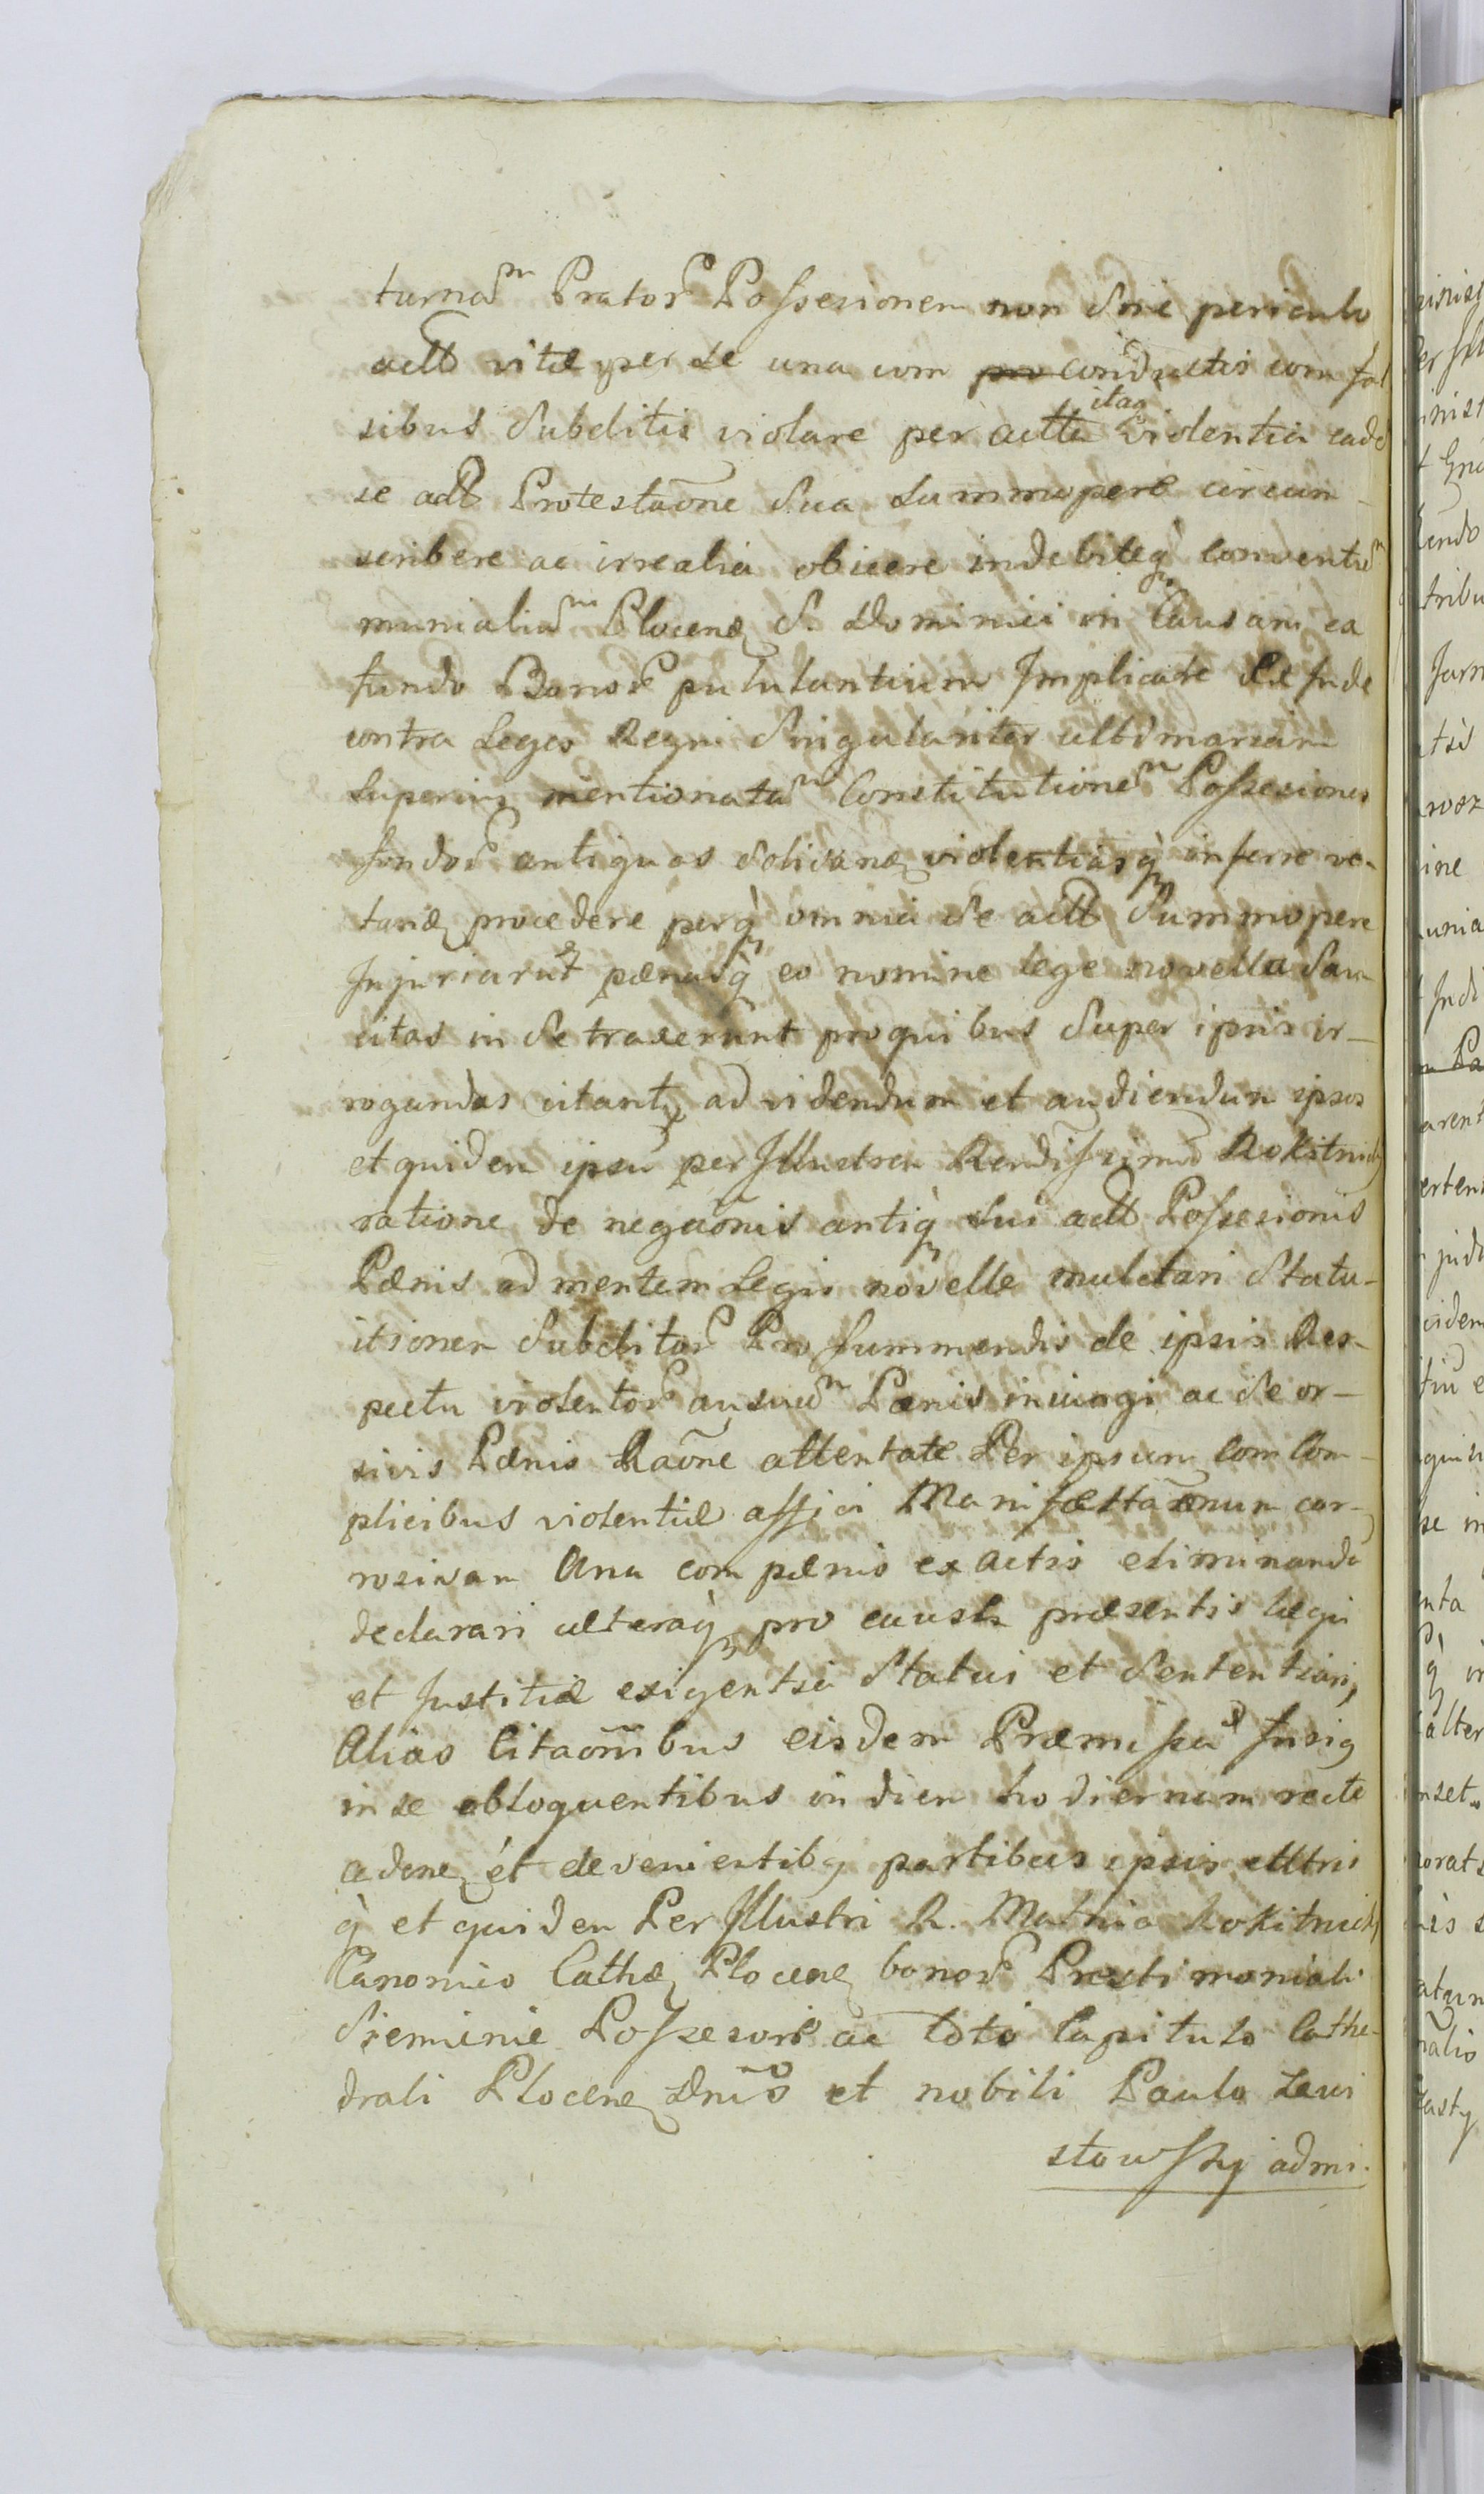 turnam Prator Possesionem non sine periculo
actt vitæ per se una com pro conductis com fal
sibus subditis violare per actta itaq violentia eade
se actt Protestaone sua summopere circum-
scribere ac irrealia obicere indebiteq conventum
munialium Plocen S. Dominici in Causam ea
fundo Bonor pululantium Implicate Et Inde
contra Leges Regni Singulariter ulttimariam
Superius mentionatam Constitutionem Possesiones
fundor antiquas violentiasq inferre ve-
tan procedere perq omnia se actt Summopere
Injuriarut pænasq eo nomine lege novella San
citas in se traxerunt pro quibus super ipsis ir-
rogandas citant ad videndum et audiendum ipsos
et quidem ipsu per Illustrem Rendissimu Rokitnick
ratione de negaonis antiq sui actt Possesionis
Pænis ad mentem Legis novelle mulctari Statu-
itionem Subditor Pro summendis de ipsis Res-
pectu violentor ausuum Pænis iniungi ac se or-
sivis Pænis Raone attentate Per ipsum com Com-
plicibus violentiæ affici Manifesttaonum cor-
rosivam Una com pænis ex actis eliminanda
declarari ulteraq pro causa præsentis legi
et Justitiæ exigentia Statui et Sententiari,
Alias Citaonibus eisdem Præmissa
in se obloquentibus in diem hodiernum recte
caden et devenientibq partibus ipsis acttris
q et quidem Per Illustri R. Mathia Rokitnick
Canonico Cathe Plocen bonor Prestimoniali
Siemienie Possesore ac toto Capitulo Cathe-
drali Plocen Dnis et nobili Paulo Lewi
stowsky admi.